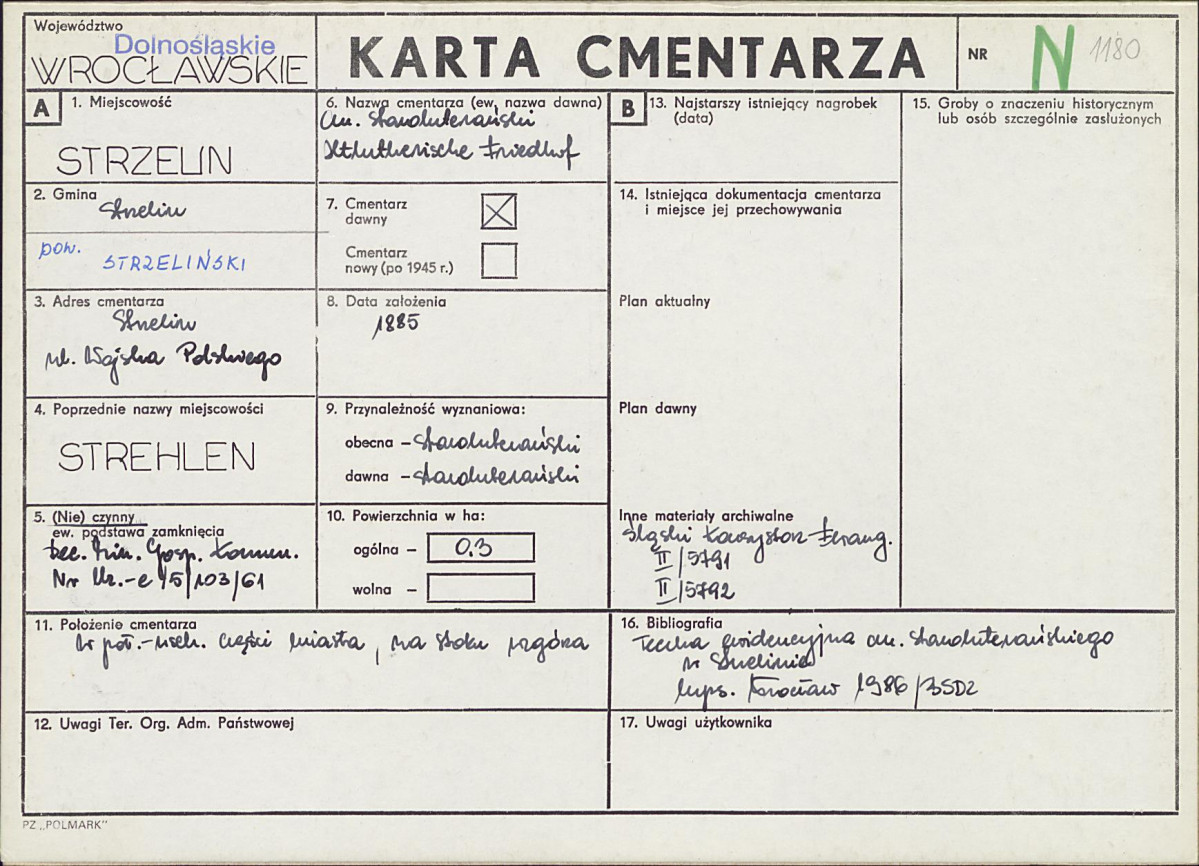 Województwo
Dolnośląskie
WROCŁAWSKIE
KARTA CMENTARZA
NR
N 1180
A
1. Miejscowość
STRZELIN
2. Gmina
Strzelin
pow.
STRZELIŃSKI
3. Adres cmentarza
Strzelin
ul. Wojska Polskiego
4. Poprzednie nazwy miejscowości
STREHLEN
5. (Nie) czynny
ew. podstawa zamknięcia
Dec. Min. Gosp. Komun.
Nr Uz.-e 15/103/61
6. Nazwa cmentarza (ew. nazwa dawna)
Cm. staroluterański
Altlutherische Friedhof
7. Cmentarz
dawny
Cmentarz
nowy (po 1945 r.)
8. Data założenia
1885
9. Przynależność wyznaniowa:
obecna – staroluterański
dawna – staroluterański
10. Powierzchnia w ha:
ogólna – 0.3
wolna –
B
13. Najstarszy istniejący nagrobek
(data)
14. Istniejąca dokumentacja cmentarza
i miejsce jej przechowywania
Plan aktualny
Plan dawny
Inne materiały archiwalne
Śląski Konsystorz Ewang.
II/5791
II/5792
15. Groby o znaczeniu historycznym
lub osób szczególnie zasłużonych
11. Położenie cmentarza
W poł.-wsch. części miasta, na stoku wzgórza
16. Bibliografia
Teczka ewidencyjna cm. staroluterańskiego
w Strzelinie
mps. Wrocław 1986/BSDZ
12. Uwagi Ter. Org. Adm. Państwowej
17. Uwagi użytkownika
PZ „POLMARK"